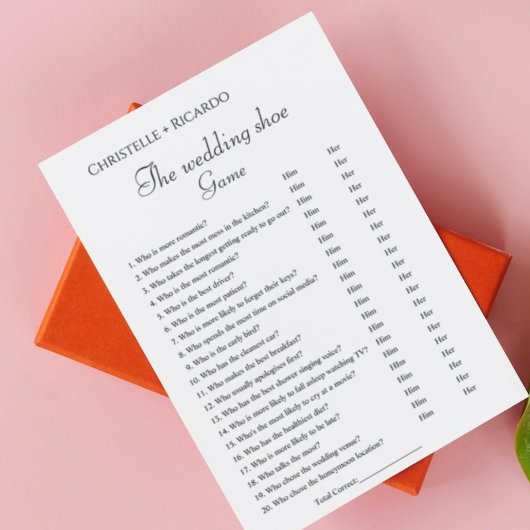 Christelle + Ricardo
The wedding shoe
Game
1. Who is more romantic? Him Her
2. Who makes the most mess in the kitchen? Him Her
3. Who takes the longest getting ready to go out? Him Her
4. Who is the most romantic? Him Her
5. Who is the best driver? Him Her
6. Who is the most patient? Him Her
7. Who is more likely to forget their keys? Him Her
8. Who spends the most time on social media? Him Her
9. Who is the early bird? Him Her
10. Who has the cleanest car? Him Her
11. Who makes the best breakfast? Him Her
12. Who usually apologises first? Him Her
13. Who has the best shower singing voice? Him Her
14. Who is more likely to fall asleep watching TV? Him Her
15. Who's the most likely to cry at a movie? Him Her
16. Who has the healthiest diet? Him Her
17. Who is more likely to be late? Him Her
18. Who talks the most? Him Her
19. Who chose the wedding venue? Him Her
20. Who chose the honeymoon location? Him Her
Total Correct: